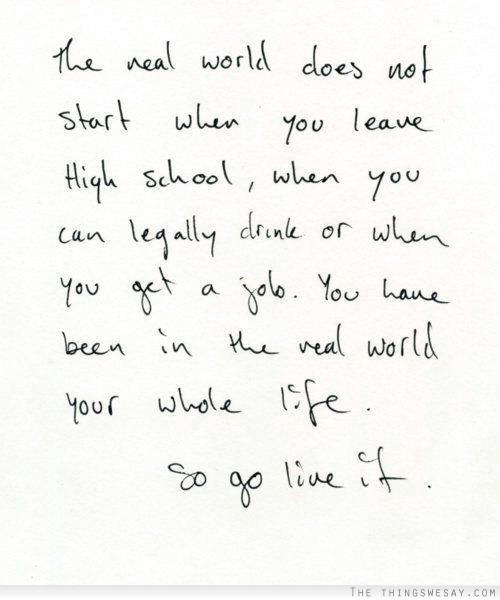 the real world does not
start when you leave
High school, when you
can legally drink or when
you get a job. You have
been in the real world
your whole life.
So go live it.
THE THINGSWESAY.COM